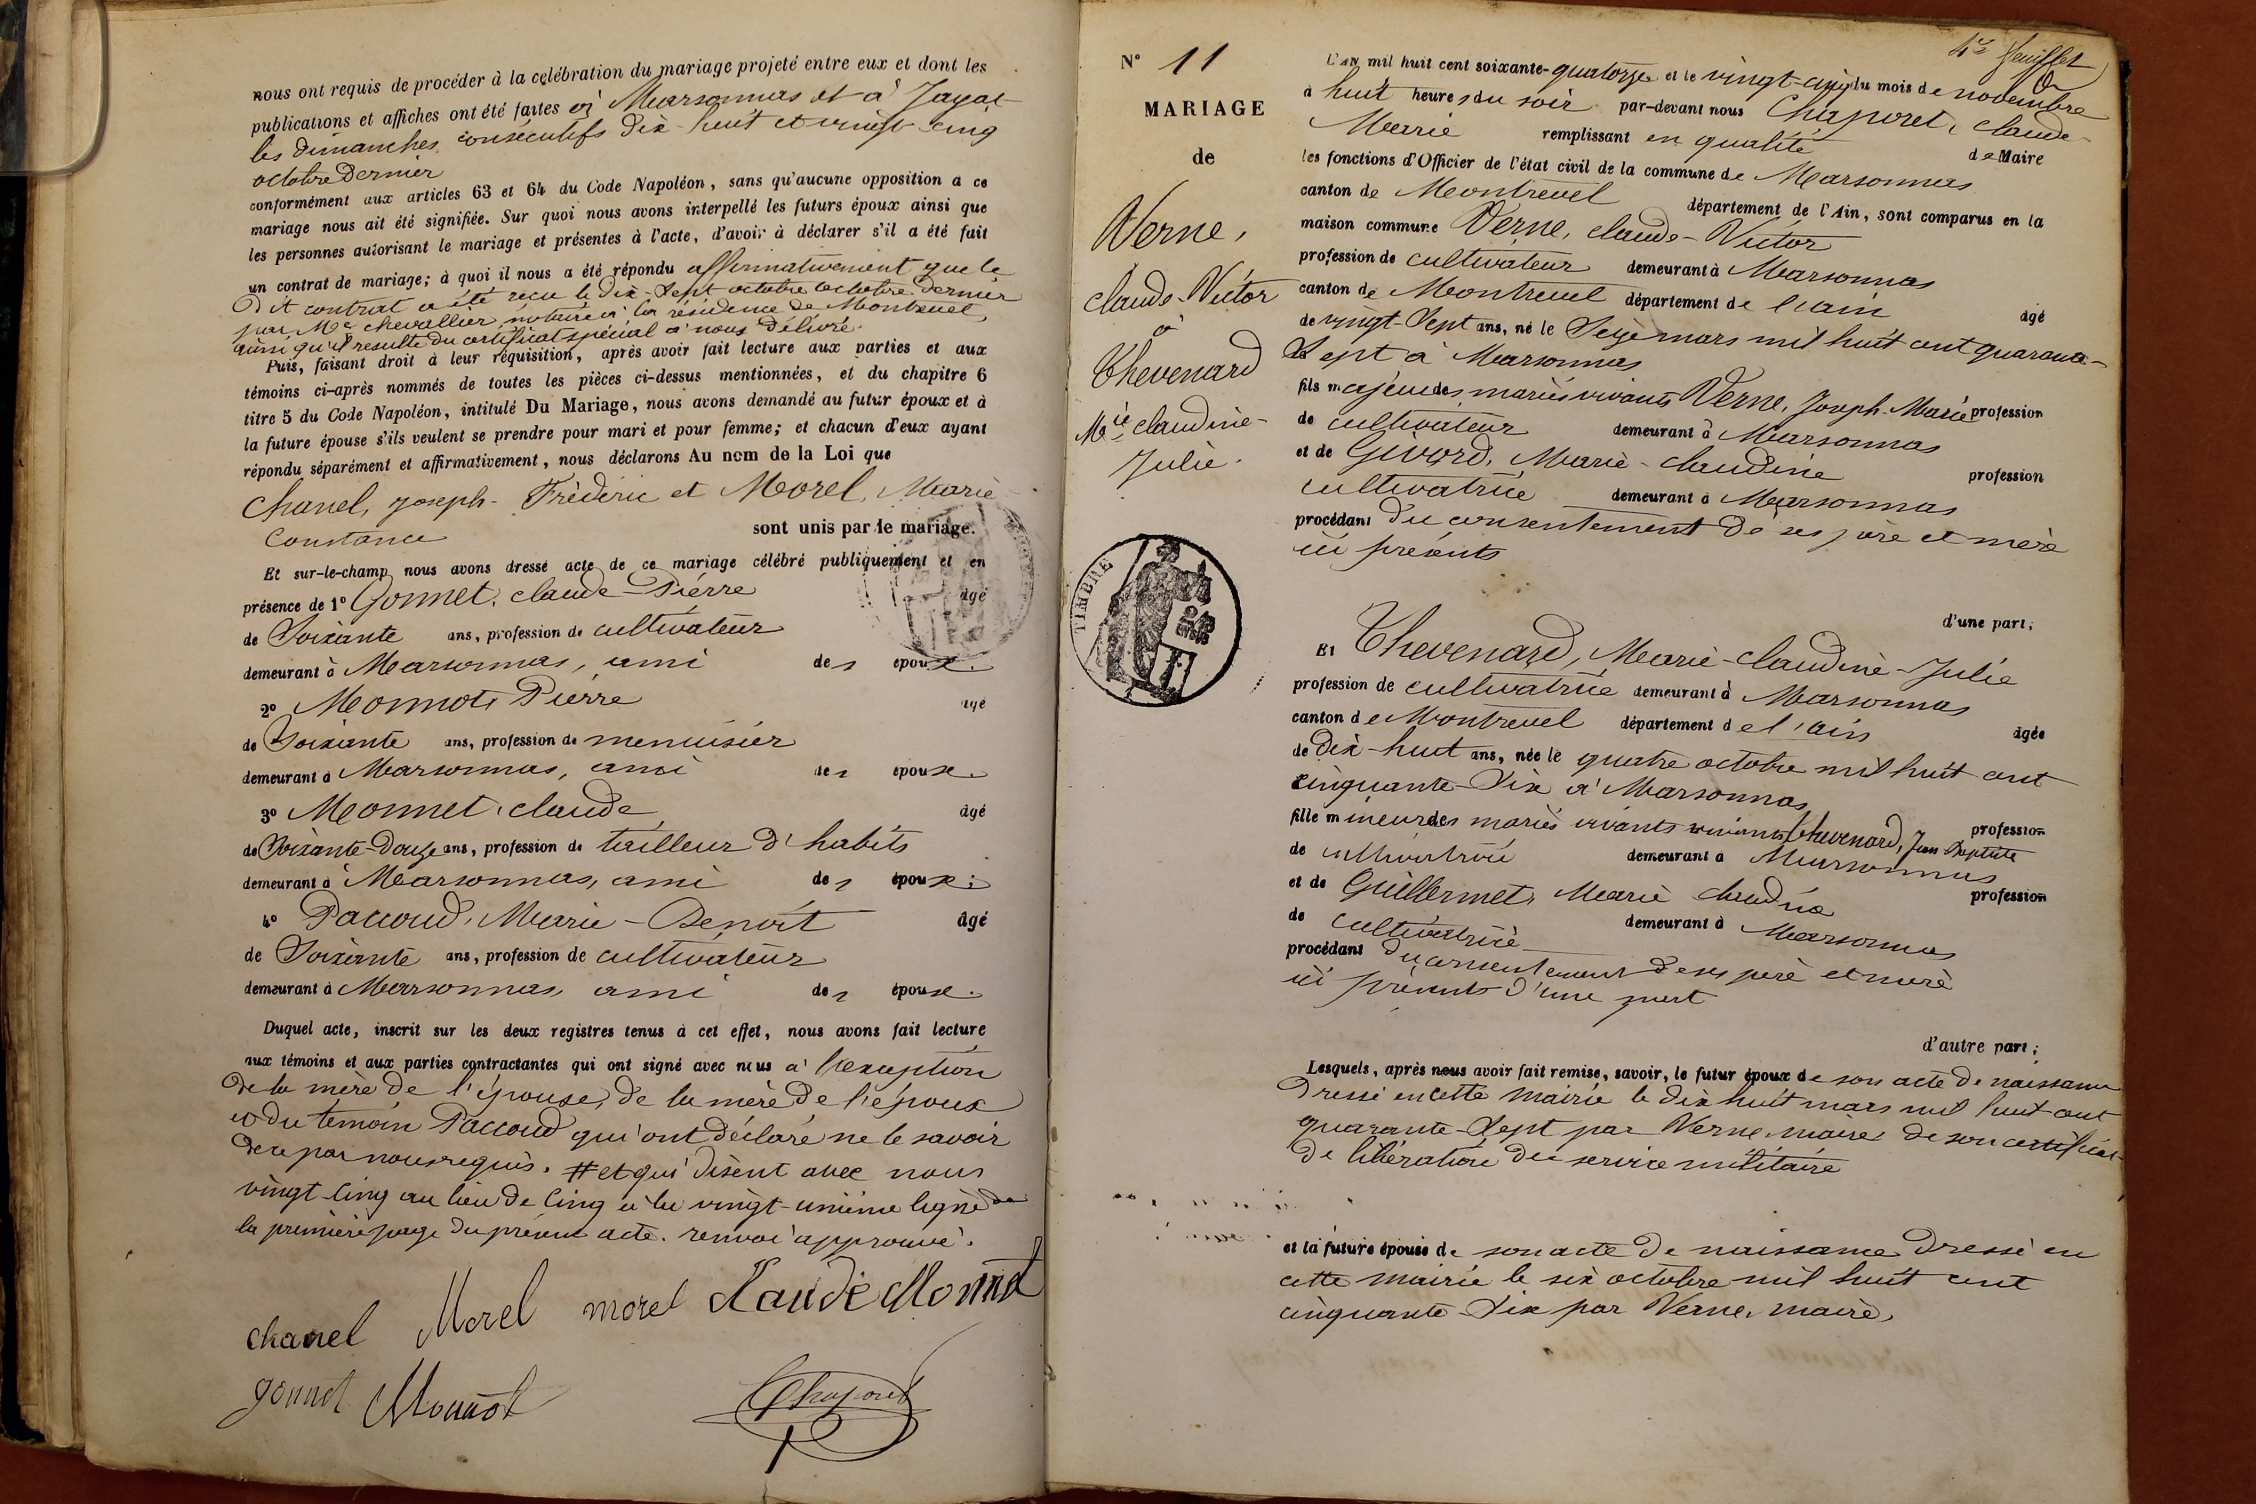 nous ont requis de procéder à la célébration du mariage projeté entre eux et dont les
publications et affiches ont été faites à Marsonnas et à Jayat
les dimanches consécutifs dix-huit et vingt cinq
octobre dernier
conformément aux articles 63 et 64 du Code Napoléon, sans qu'aucune opposition à ce
mariage nous ait été signifiée. Sur quoi nous avons interpellé les futurs époux ainsi que
les personnes autorisant le mariage et présentes à l'acte, d'avoir à déclarer s'il a été fait
un contrat de mariage; à quoi il nous a été répondu affirmativement que le
dit contrat a été reçu le dix-sept octobre octobre dernier
par Me chevallier, notaire à la résidence de Montrevel
ainsi qu'il resulte du certificat spécial à nous délivré.
Puis, faisant droit à leur réquisition, après avoir fait lecture aux parties et aux
témoins ci-après nommés de toutes les pièces ci-dessus mentionnées, et du chapitre 6
titre 5 du Code Napoléon, intitulé Du Mariage, nous avons demandé au futur époux et à
la future épouse s'ils veulent se prendre pour mari et pour femme; et chacun d'eux ayant
répondu séparément et affirmativement, nous déclarons Au nom de la Loi que
Chanel, Joseph-Frédéric et Morel, Marie
Constance
sont unis par le mariage.
Et sur-le-champ nous avons dressé acte de ce mariage célébré publiquement et en
présence de 1° Gonnet, claude-Pierre âgé
de Soixante ans, profession de cultivateur
demeurant à Marsonnas, ami des épouse.
2° Monnot, Pierre âgé
de Soixante ans, profession de menuisier
demeurant à Marsonnas, ami des épouse.
3° Monnet, claude, âgé
de Soixante-douze ans, profession de tailleur d'habits
demeurant à Marsonnas, ami des épouse.
4° Paccoud, Marie-Benoit âgé
de Soixante ans, profession de cultivateur
demeurant à Marsonnas, ami des épouse.
Duquel acte, inscrit sur les deux registres tenus à cet effet, nous avons fait lecture
aux témoins et aux parties contractantes qui ont signé avec nous à l'exception
de la mère de l'épouse, de la mère de l'époux
et du temoin Paccoud qui ont déclaré ne le savoir
de ce par nous requis. # et qui disent avec nous
vingt-cinq au lieu de cinq à la vingt-unième ligne de
la première page du présent acte. renvoi approuvé.
chanel Morel morel Claude Monnet
gonnet Monnot Chaporet
4e feuillet
N° 11
MARIAGE
de
Verne,
claude-Victor
à
Thevenard
Mie claudine-
Julie.
TIMBRE
L'AN mil huit cent soixante-quatorze et le vingt-cinq du mois de novembre
à huit heures du soir par-devant nous Chaporet, claude-
Marie remplissant en qualité de Maire
les fonctions d'Officier de l'état civil de la commune de Marsonnas
canton de Montrevel département de l'Ain, sont comparus en la
maison commune Verne, claude-Victor
profession de cultivateur demeurant à Marsonnas
canton de Montrevel département de l'ain âgé
de vingt-Sept ans, né le Seize mars mil huit cent quarante-
Sept à Marsonnas
fils majeur des mariés vivants Verne, Joseph-Marie profession
de cultivateur demeurant à Marsonnas
et de Givord, Marie-claudine profession
cultivatrice demeurant à Marsonnas
procédant du consentement de ses père et mère
ici présents
d'une part;
Et Thevenard, Marie-claudine-Julie
profession de cultivatrice demeurant à Marsonnas
canton de Montrevel département de l'ain âgée
de dix-huit ans, née le quatre octobre mil huit cent
cinquante-Six à Marsonnas
fille mineure des mariés vivants vivants Thevenard, Jean Baptiste profession
de cultivatrice demeurant à Marsonnas
et de Guillermet, Marie claudine profession
de cultivatrice demeurant à Marsonnas
procédant du consentement de ses père et mère
ici présents d'une part
d'autre part;
Lesquels, après nous avoir fait remise, savoir, le futur époux de son acte de naissance
dressé en cette mairie le dix huit mars mil huit cent
quarante-Sept par Verne, maire, de son certificat
de libération du service militaire
et la future épouse de son acte de naissance dressé en
cette mairie le six octobre mil huit cent
cinquante-Six par Verne, maire,